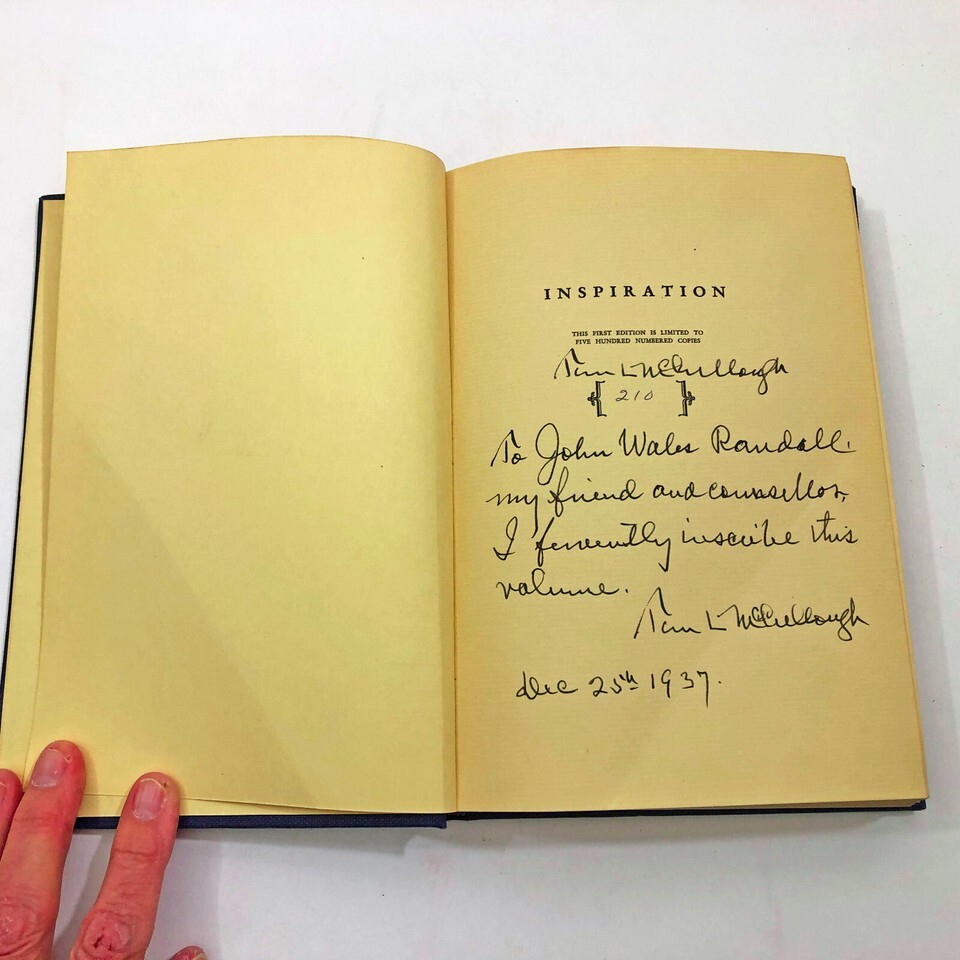 INSPIRATION
THIS FIRST EDITION IS LIMITED TO
FIVE HUNDRED NUMBERED COPIES
Tom L McCullough
210
To John Wales Randall.
my friend and counsellor,
I fervently inscribe this
volume.
Tom L McCullough
Dec 25th 1937.